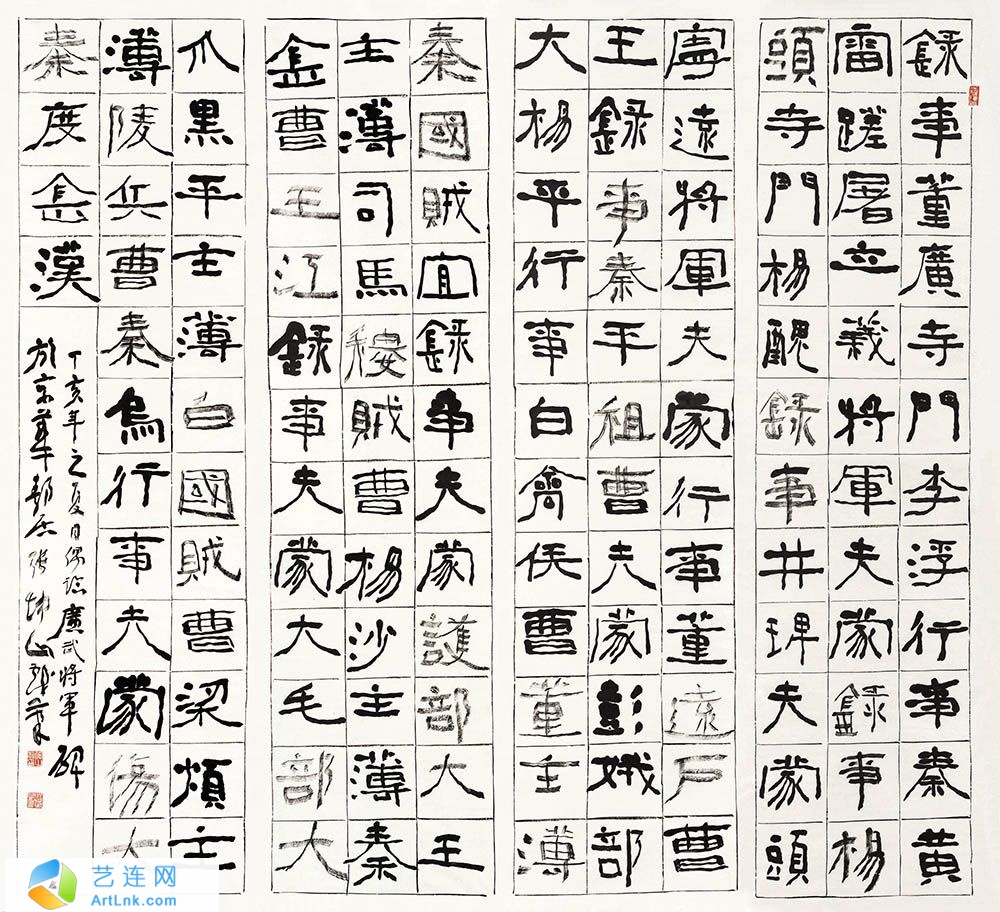 録事董廣寺門李浮行事秦黄
雷蹉屠立義將軍夫蒙録事楊
頭寺門楊醜録事井琕夫蒙頭
寧遠將軍夫蒙行事董遠戸曹
王録事秦平祖曹夫蒙彭娥部
大楊平行事白禽侯曹董主薄
秦國賊宜録事夫蒙護部大王
主薄司馬䅦賊曹楊沙主薄秦
金曹王江録事夫蒙大毛部大
爪黒平主薄白國賊曹梁煩主
薄陵兵曹秦烏行事夫蒙傷大
秦度金漢
丁亥年之夏日偶臨廣武將軍碑
於京華 張坤山
艺连网
ArtLnk.com